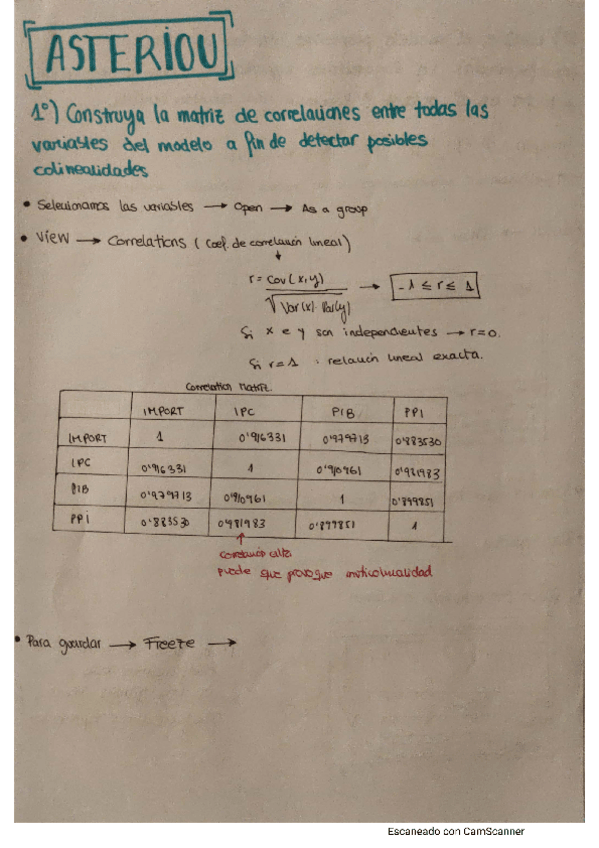 ASTERIOU
1º) Construya la matriz de correlaciones entre todas las
variables del modelo a fin de detectar posibles
colinealidades
• Seleccionamos las variables → Open → As a group
• View → Correlations (Coef. de correlación lineal)
↓
r = Cov(x,y) / √Var(x)·Var(y) → -1 ≤ r ≤ 1
Si x e y son independientes → r=0.
Si r=1 : relación lineal exacta.
Correlation Matriz.
IMPORT IPC PIB PPI
IMPORT 1 0'916331 0'979713 0'883530
IPC 0'916331 1 0'910961 0'981983
PIB 0'979713 0'910961 1 0'899851
PPI 0'883530 0'981983 0'899851 1
↑
correlación alta
puede que provoque multicolinealidad
• Para guardar → Freeze →
Escaneado con CamScanner